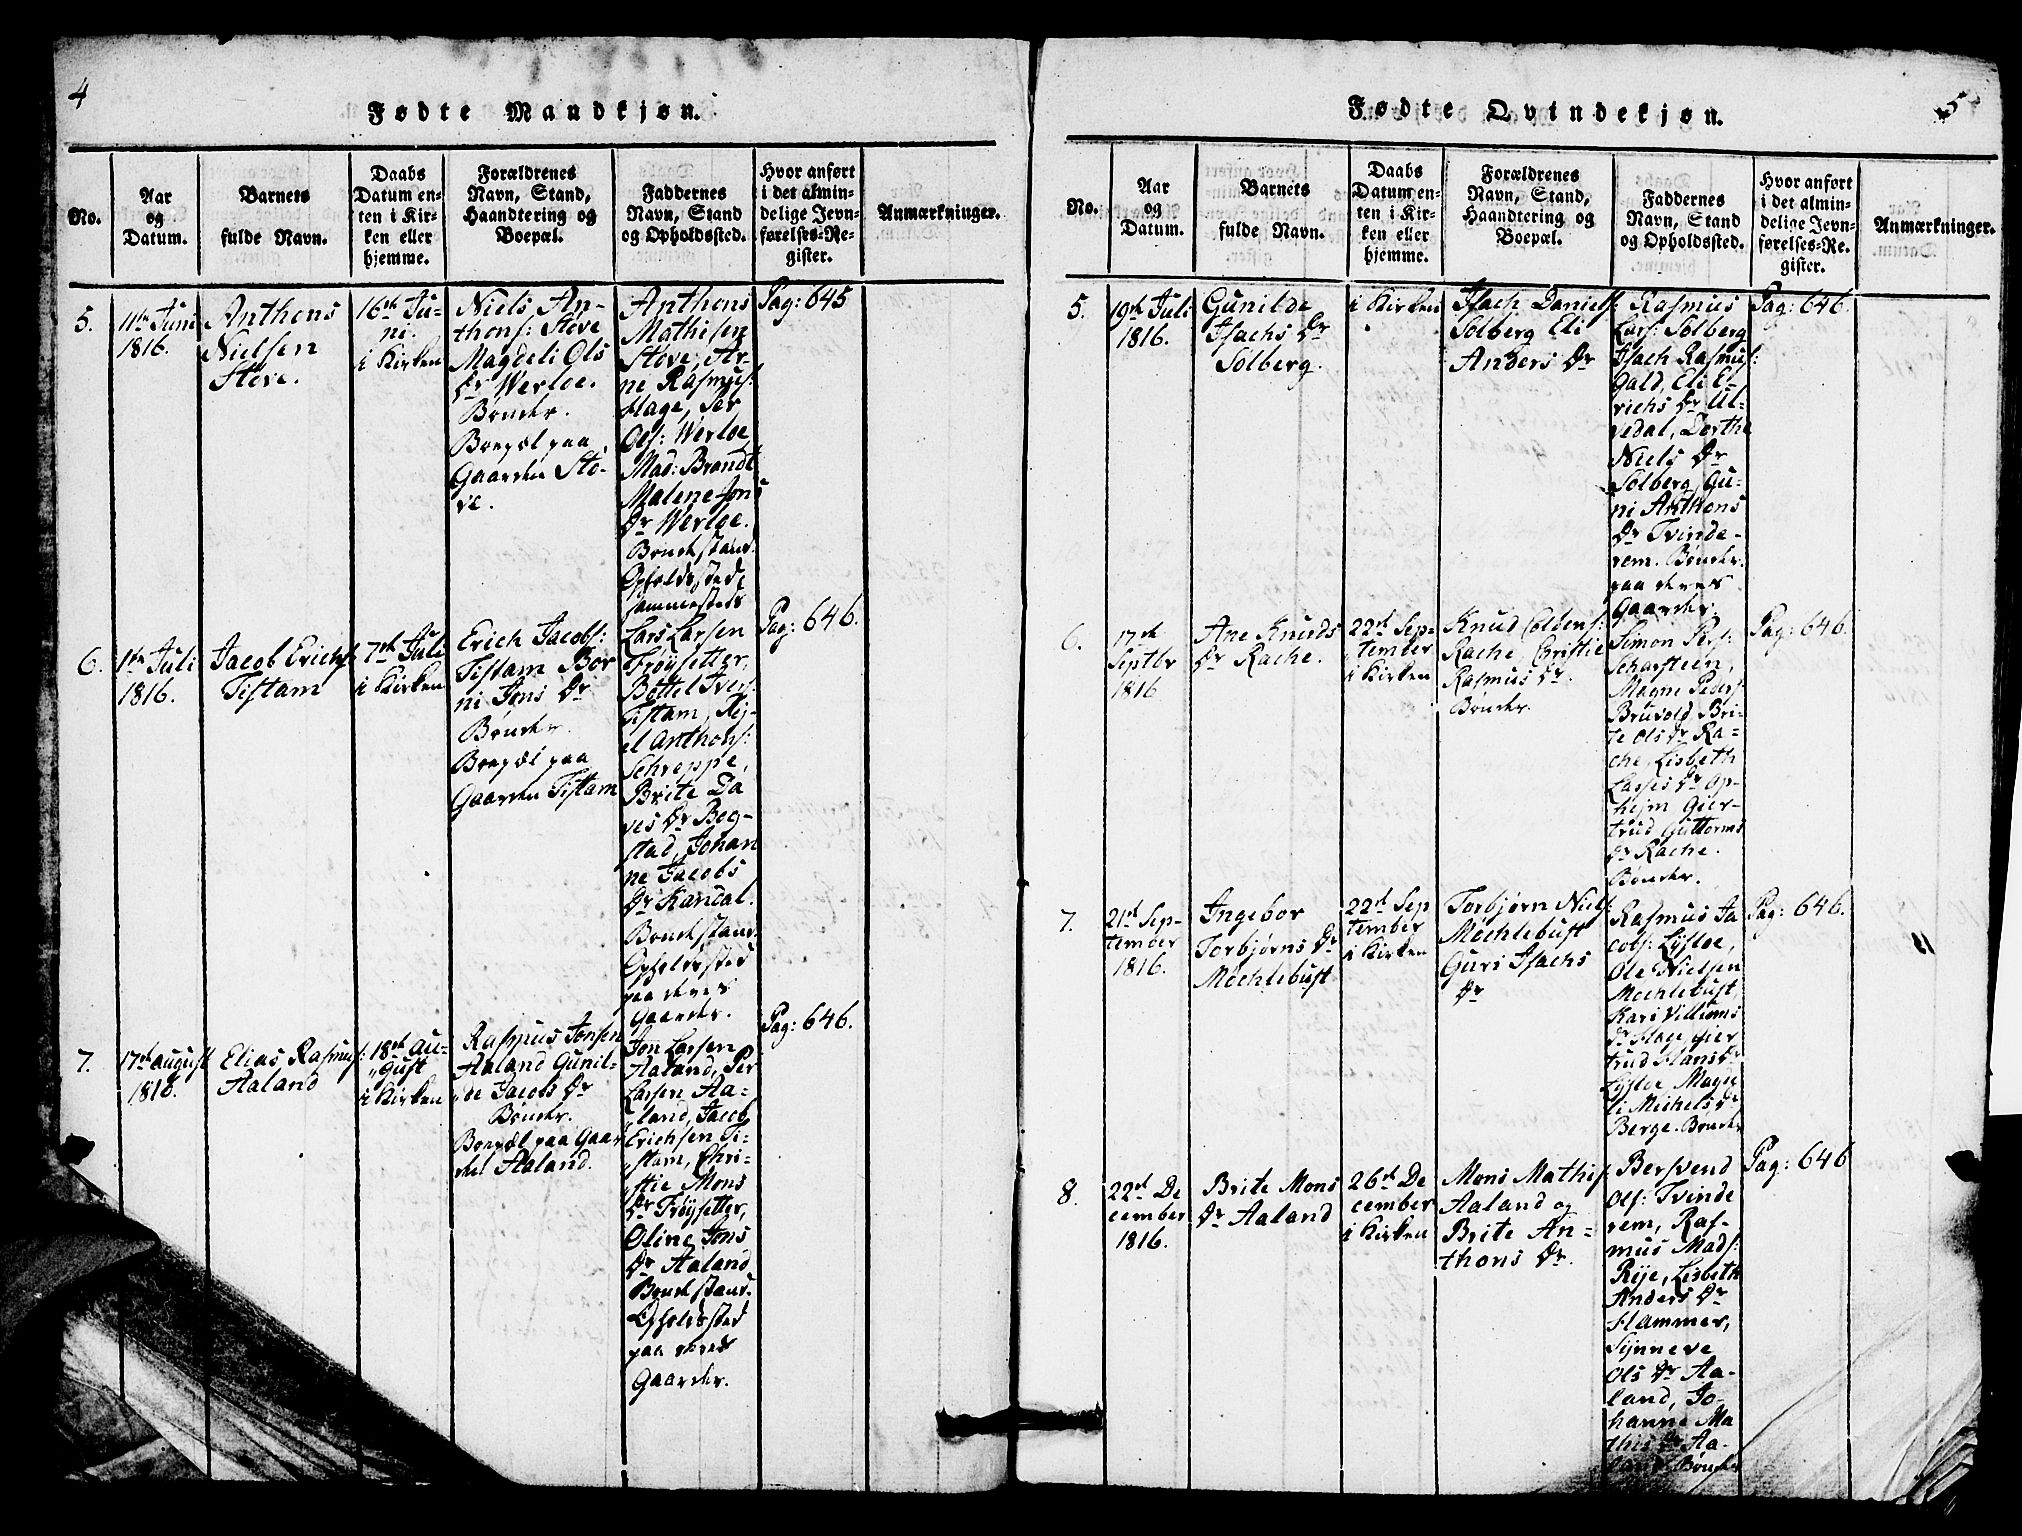 4
Fødte Mandkjøn.
No.
Aar
og
Datum.
Barnets
fulde Navn.
Daabs
Datum en-
ten i Kir-
ken eller
hjemme.
Forældrenes
Navn, Stand,
Haandtering og
Boepæl.
Faddernes
Navn, Stand
og Opholdssted.
Hvor anført
i det almin-
delige Jevn-
førelses-Re-
gister.
Anmærkninger.
5.
11te Juni
1816.
Anthons
Nielsen
Støve.
16de Ju-
ni.
i Kirken
Niels An-
thons: Støve
Magdeli Ols
Dr Werløe.
Bønder.
Boepæl paa
Gaarden Stø-
ve.
Anthons
Mathisen
Støve, Ar-
ne Rasmus:
Hage, Ser
Ols: Werløe
Mad: Brandt
Malene Jons
Dr Werløe.
Bondestand.
Opholdssted
sammesteds
Pag: 645
6.
1te Juli
1816.
Jacob Erichs:
Tistam
7de Juli
i Kirken
Erich Jacobs:
Tistam Bor
ni Jons Dr
Bønder.
Boepæl paa
Gaarden Tistam
Lars Larsen
Frøysetter,
Bottel Ivers:
Tistam, Kj-
el Anthons:
Schreppe,
Brite Da
ves Dr Bog-
stad, Johan
ne Jacobs
Dr Kandal.
Bondestand.
Opholdssted
paa deres
Gaarder.
Pag: 646.
7.
17de August
1816.
Elias Rasmus:
Aaland
18de Au-
gust
i Kirken
Rasmus Jonsen
Aaland Gunil-
de Jacobs Dr
Bønder.
Boepæl paa Gaar
den Aaland.
Jon Larsen
Aaland, Per
Larsen Aa-
land, Jacob
Erichsen Ti-
stam, Chri-
stie Mons
Dr Frøysetter,
Oline Jons
Dr Aaland
Bondestand.
Opholdssted
paa deres
Gaarder.
Pag: 646.
5
Fødte Qvindekjøn.
No.
Aar
og
Datum.
Barnets
fulde Navn.
Daabs
Datum en-
ten i Kir-
ken eller
hjemme.
Forældrenes
Navn, Stand,
Haandtering og
Boepæl.
Faddernes
Navn, Stand
og Opholdssted.
Hvor anført
i det almin-
delige Jevn-
førelses-Re-
gister.
Anmærkninger.
5.
19de Juli
1816.
Gunilde
Isachs Dr
Solberg.
i Kirken
Isach Daniels:
Solberg Eli
Anders Dr
Rasmus
Lars: Solberg
Isach Rasmus:
Gald, Eli E-
richs Dr Ul-
vedal, Dorthe
Niels Dr
Solberg, Gu-
ni Anthons
Dr Tvinde-
rem. Bønder.
paa deres
Gaarder.
Pag: 646.
6.
17de
Septbr
1816
Ane Knuds
Dr Rache.
22de Sep-
tember
i Kirken
Knud Colbens:
Rache, Christie
Rasmus Dr.
Bønder.
Simon Pers:
Scharsteen,
Magne Peders:
Bruvold, Bri-
te Ols Dr Ra-
che, Lisbeth
Lasses Dr Op-
hejm Gier-
trud Guttorms
Dr Rache.
Bønder.
Pag: 646.
7.
21de Sep-
tember
1816.
Ingebor
Torbjørns Dr
Möchlebust
22de Sep
tember
i Kirken
Torbjørn Niels:
Möchlebust
Guri Isachs
Dr
Rasmus Ja
cobs: Lysløe,
Ole Nielsen
Mochlebust,
Kari Villums
Dr Hage, Gier
trud Hans Dr
Lysløe Magde
li Michels Dr
Berge. Bønder
Pag: 646.
8.
22de De
cember
1816.
Brite Mons
Dr Aaland
26de De
cember
i Kirken
Mons Mathis:
Aaland og
Brite An-
thons Dr.
Bersvend
Ols: Tvinde
rem, Ras-
mus Mads:
Rije, Lisbeth
Anders Dr
Hammer,
Synneve
Ols Dr Aa-
land, Jo-
hanne Ma
this Dr Aa-
land. Bønder
Pag: 646